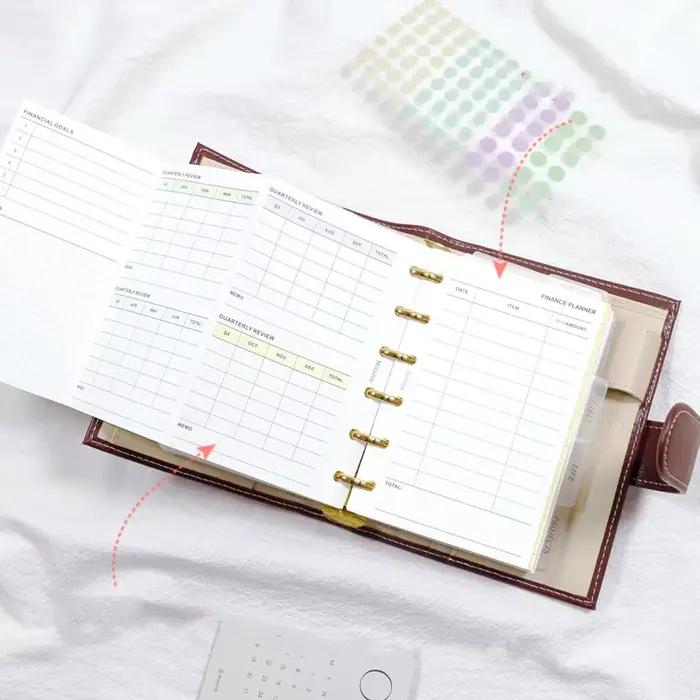 FINANCIAL GOALS
1
2
3
4
5
QUARTERLY REVIEW
Q1 JAN FEB MAR TOTAL
MEMO
QUARTERLY REVIEW
APR MAY JUN TOTAL
MEMO
QUARTERLY REVIEW
Q3 JUL AUG SEP TOTAL
MEMO
QUARTERLY REVIEW
Q4 OCT NOV DEC TOTAL
MEMO
Monthly
FINANCE PLANNER
DATE ITEM AMOUNT
TOTAL:
LIFE
PROJECTS